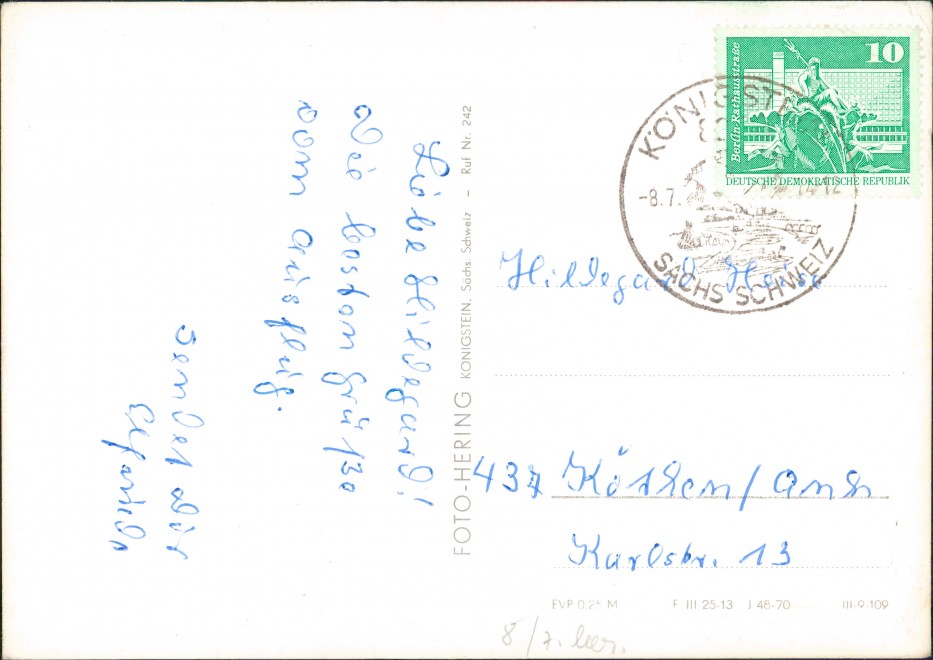 Liebe Hildegard!
Die besten Grüße
vom Ausflug.
Sendet dir
FOTO-HERING KÖNIGSTEIN, Sächs. Schweiz – Ruf Nr. 242
10
Berlin-Rathausstraße
DEUTSCHE DEMOKRATISCHE REPUBLIK
KÖNIGST
-8.7.
SÄCHS SCHWEIZ
Hildegard
437 Köthen/Anh
Karlstr. 13
EVP 0,25 M F III 25-13 J 48-70 III-9-109
8/7.